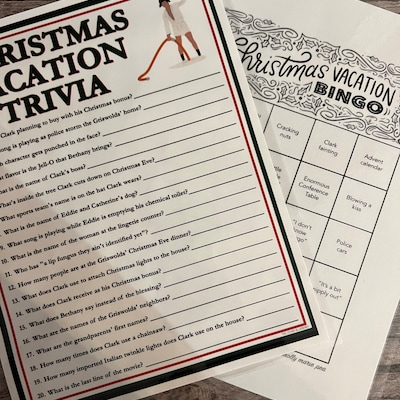 CHRISTMAS
VACATION
TRIVIA
Clark planning to buy with his Christmas bonus?
ong is playing as police storm the Griswolds' home?
h character gets punched in the face?
at flavor is the Jell-O that Bethany brings?
hat is the name of Clark's boss?
What's inside the tree Clark cuts down on Christmas Eve?
What sports team's name is on the hat Clark wears?
What is the name of Eddie and Catherine's dog?
9. What song is playing while Eddie is emptying his chemical toilet?
10. What is the name of the woman at the lingerie counter?
11. Who has "a lip fungus they ain't identified yet"?
12. How many people are at the Griswolds' Christmas Eve dinner?
13. What does Clark use to attach Christmas lights to the house?
14. What does Clark receive as his Christmas bonus?
15. What does Bethany say instead of the blessing?
16. What are the names of the Griswolds' neighbors?
17. What are the grandparents' first names?
18. How many times does Clark use a chainsaw?
19. How many imported Italian twinkle lights does Clark use on the house?
20. What is the last line of the movie?
Christmas VACATION
BINGO
Cracking
nuts
Clark
fainting
Advent
calendar
little
Enormous
Conference
Table
Blowing a
kiss
"I don't
know
Police
cars
"It's a bit
supply out"